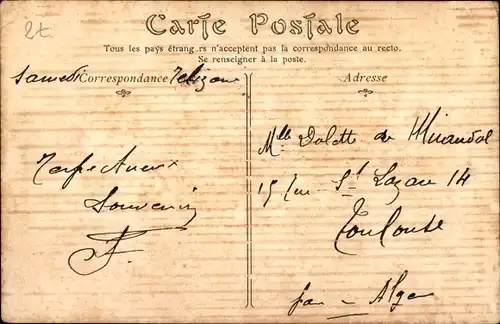 2t
Carte Postale
Tous les pays étrang.rs n'acceptent pas la correspondance au recto.
Se renseigner à la poste.
Samedi Correspondance
Adresse
Respectueux
Souvenir
F.
Mlle Dolette de Mirandol
15 rue St Lazare 14
Toulouse
par - Alger